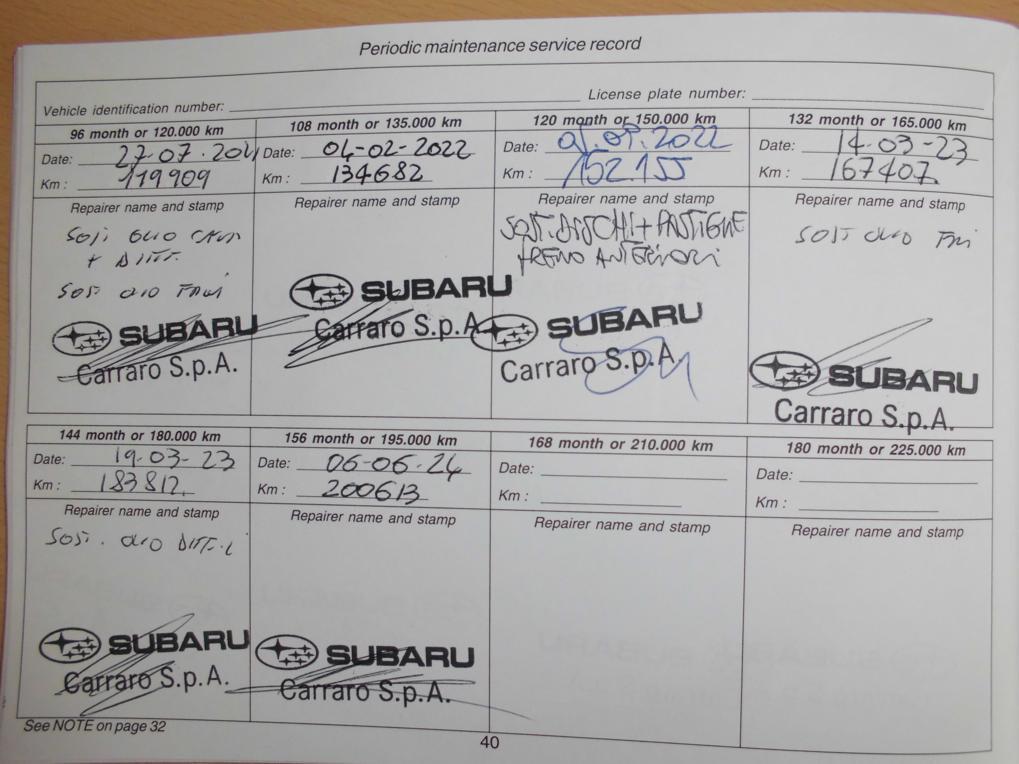 Periodic maintenance service record
Vehicle identification number: License plate number:
96 month or 120.000 km
Date: 27.07.2021
Km : 119909
Repairer name and stamp
SOST. OLIO CAMB
+ DIFF.
SOST OLIO FRENI
SUBARU
Carraro S.p.A.
108 month or 135.000 km
Date: 04-02-2022
Km : 134682
Repairer name and stamp
SUBARU
Carraro S.p.A.
120 month or 150.000 km
Date: 2022
Km : 152.155
Repairer name and stamp
SOST. DISCHI + PASTIGLIE
FRENO ANTERIORI
SUBARU
Carraro S.p.A.
132 month or 165.000 km
Date: 14-03-23
Km : 167407
Repairer name and stamp
SOST OLIO FRENI
SUBARU
Carraro S.p.A.
144 month or 180.000 km
Date: 19-03-23
Km : 183812
Repairer name and stamp
SOST. OLIO DIFF.
SUBARU
Carraro S.p.A.
156 month or 195.000 km
Date: 06-06-24
Km : 200613
Repairer name and stamp
SUBARU
Carraro S.p.A.
168 month or 210.000 km
Date:
Km :
Repairer name and stamp
180 month or 225.000 km
Date:
Km :
Repairer name and stamp
See NOTE on page 32
40